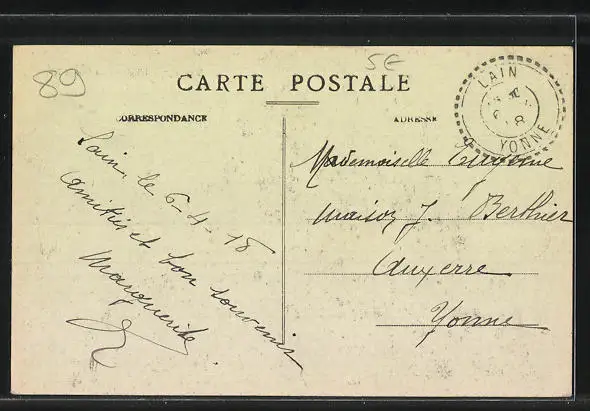 89
5E
CARTE POSTALE
CORRESPONDANCE
ADRESSE
LAIN
YONNE
Lain, le 6-4-18
Amitiés et bon souvenir
Marguerite
Mademoiselle
Maison J. Berthier
Auxerre
Yonne